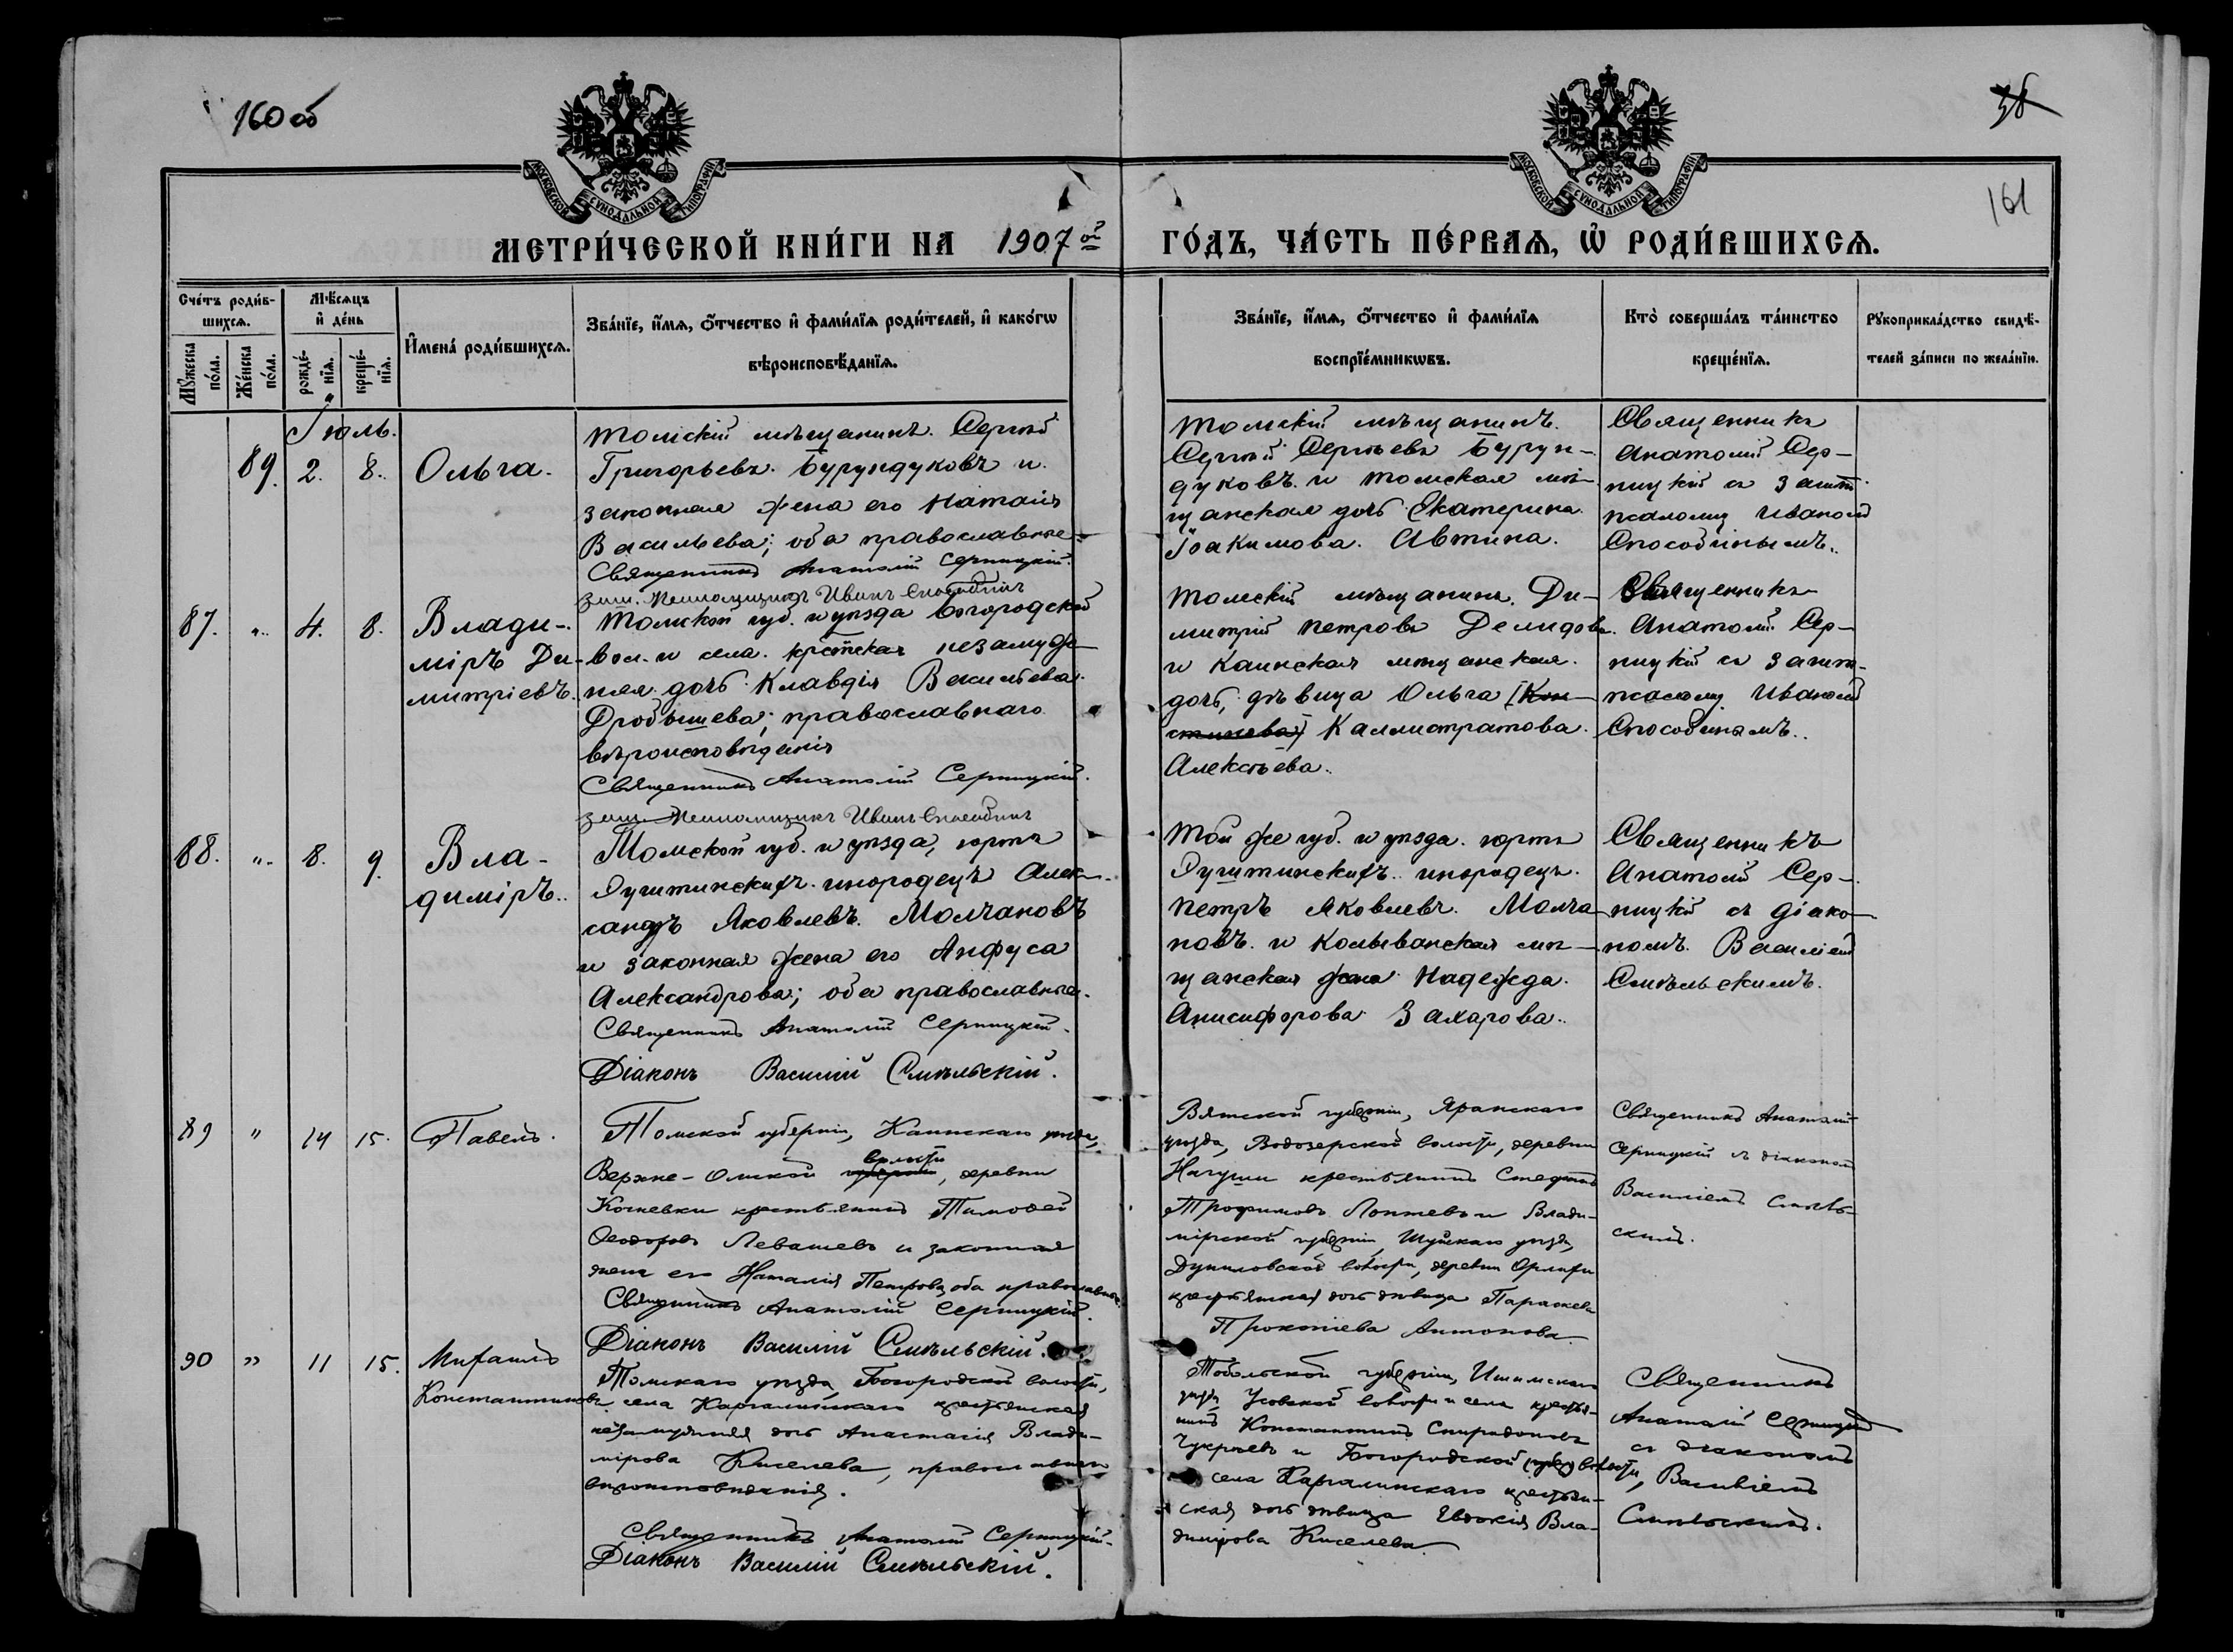 160 об
38
161
МОСКОВСКОЙ СѴНОДАЛЬНОЙ ТИПОГРАФІИ
МОСКОВСКОЙ СѴНОДАЛЬНОЙ ТИПОГРАФІИ
МЕТРИ́ЧЕСКОЙ КНИ́ГИ НА 1907 ой ГО́ДЪ, ЧА́СТЬ ПЕ́РВАѦ, Ѡ҆ РОДИ́ВШИХСѦ.
Сче́тъ роди́в-
шихсѧ.
Мꙋ́жеска по́ла.
Же́нска по́ла.
Мѣ́сѧцъ
и҆ де́нь
рожде́-
нїѧ.
креще́-
нїѧ.
И҆мена̀ роди́вшихсѧ.
Зва́нїе, и҆́мѧ, ѻ҆́тчество и҆ фами́лїѧ роди́телей, и҆ како́гѡ
вѣроисповѣ́данїѧ.
Зва́нїе, и҆́мѧ, ѻ҆́тчество и҆ фами́лїѧ
воспрїе́мникѡвъ.
Кто̀ соверша́лъ та́инство
креще́нїѧ.
Рꙋкоприкла́дство свидѣ́-
телей за́писи по жела́нїю.
Іюль.
89. 2. 8. Ольга.
Томскій мѣщанинъ. Сергѣй
Григорьевъ. Бурундуковъ и.
законная жена его Наталія
Васильева; оба православные
Священникъ Анатолій Серницкій.
Иванъ Способинъ
Томскій мѣщанинъ.
Сергѣй Сергѣевъ Бурун-
дуковъ. и томская мѣ-
щанская дочь Екатерина.
Іоакимова. Автина.
Священникъ
Анатолій Сер-
ницкій съ
Иваномъ
Способинымъ.
87. „ 4. 8. Влади-
міръ Ди-
митріевъ.
Томской губ. и уѣзда Богородской
вол. и села. незамуж-
няя дочь Клавдія Васильева.
Дробышева; православнаго
вѣроисповѣданія
Священникъ Анатолій Серницкій.
Иванъ Способинъ
Томскій мѣщанинъ. Ди-
митрій Петровъ Демидовъ.
и Каинская мѣщанская.
дочь, дѣвица Ольга
Каллистратова.
Алексѣева.
Священникъ
Анатолій Сер-
ницкій съ
Иваномъ
Способинымъ.
88. „ 8. 9. Вла-
димiръ.
Томской губ. и уѣзда, юртъ
инородецъ Алек-
сандръ Яковлевъ. Молчановъ
и законная жена его Анфуса
Александрова; оба православные.
Священникъ Анатолій Серницкій.
Діаконъ Василій Смѣльскій.
Той же губ. и уѣзда. юртъ
инородецъ.
Петръ Яковлевъ. Молча-
новъ. и Колыванская мѣ-
щанская жена Надежда.
Анисифорова Захарова.
Священникъ
Анатолій Сер-
ницкій съ діако-
номъ. Василіемъ
Смѣльскимъ.
89 „ 14 15. Павелъ.
Томской губерніи, Каинскаго уѣзда,
Верхне-Омской волости, деревни
крестьянинъ Тимоѳей
Ѳеодоровъ Левашевъ и законная
жена его Наталія Петрова, оба православные.
Священникъ Анатолій Серницкій.
Діаконъ Василій Смѣльскій.
Вятской губерніи, Яранскаго
уѣзда, Водозерской волости, деревни
крестьянинъ
Трофимовъ Лаптевъ и Влади-
мірской губерніи, Шуйскаго уѣзда,
Дуниловской волости, деревни
крестьянская дочь дѣвица Параскева
Прокопіева Антонова.
Священникъ Анатолій
Серницкій съ діакономъ
Василіемъ Смѣль-
скимъ.
90 „ 11 15. Михаилъ
Константиновъ.
Томскаго уѣзда, Богородской волости,
села Каргалинскаго крестьянская
незамужняя дочь Анастасія Влади-
мірова Киселева, православнаго
вѣроисповѣданія.
Священникъ Анатолій Серницкій.
Діаконъ Василій Смѣльскій.
Тобольской губерніи, Ишимскаго
уѣзда, Усовской волости и села крестья-
нинъ Константинъ Спиридоновъ
и Богородской волости,
села Каргалинскаго крестьян-
ская дочь дѣвица Евдокія Вла-
димірова Киселева.
Священникъ
Анатолій Серницкій
съ діакономъ
Василіемъ
Смѣльскимъ.